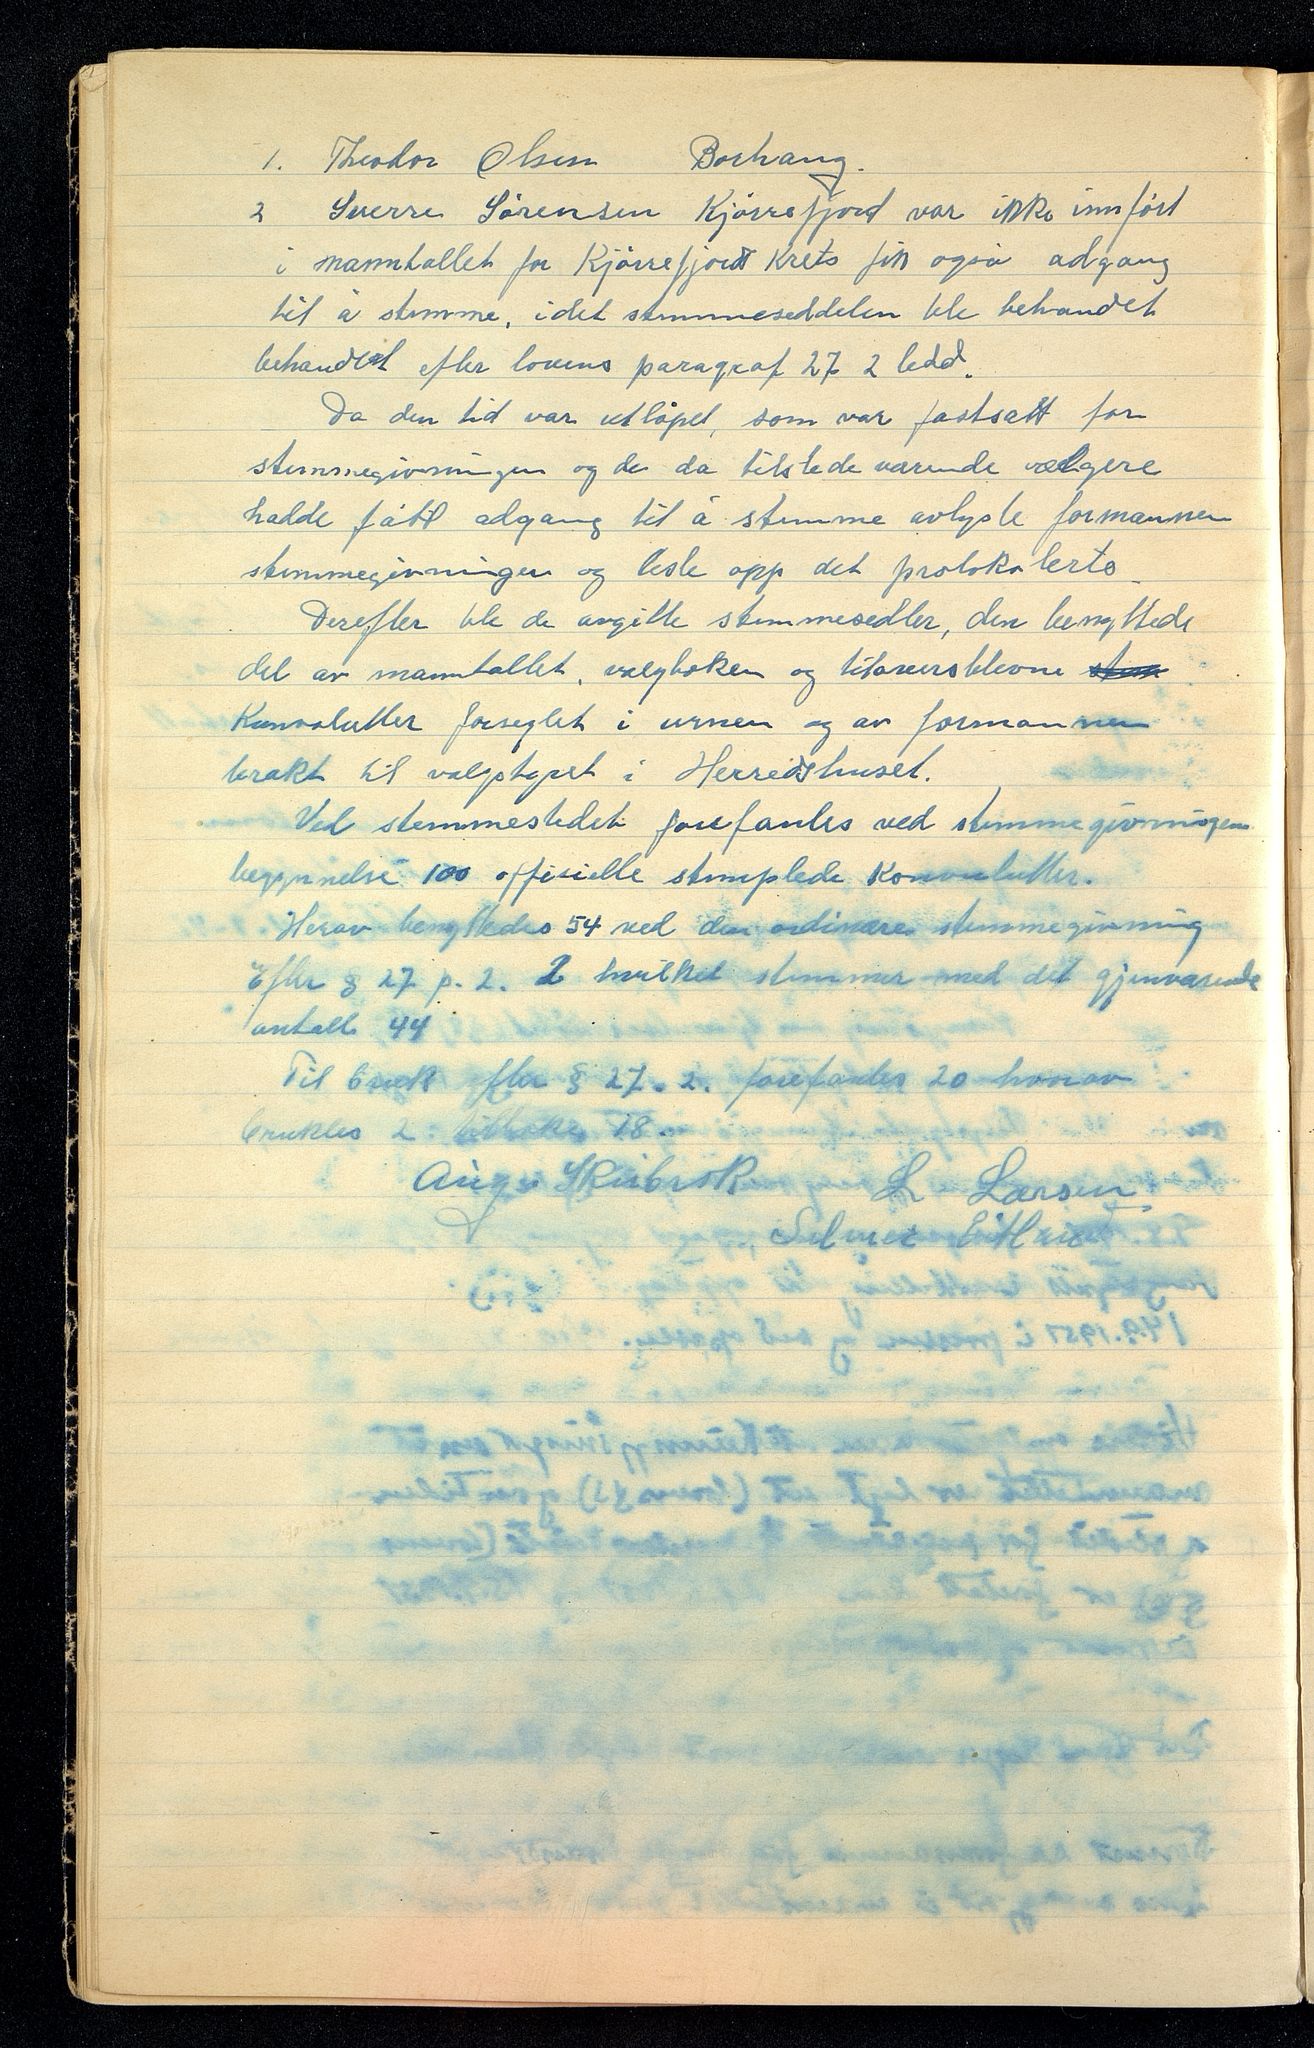 1. Theodor Olsen Borhaug.
2 Sverre Sörensen Kjörrefjord var ikke innfört
i manntallet for Kjörrefjord Krets fikk også adgang
til å stemme, idet stemmeseddelen ble behandlet
behandlet efter lovens paragraf 27 2 ledd.
Da den tid var utlöpet, som var fastsatt for
stemmegivningen og de da tilstede varende velgere
hadde fått adgang til å stemme avlyste formannen
stemmegivningen og leste opp det protokolerte
Derefter ble de avgitte stemmesedler, den benyttede
del av manntallet, valgboken og tiloversblevne
Konvolutter forseglet i urnen og av formannen
brakt til valgstyret i Herredshuset.
Ved stemmestedet forefantes ved stemmegivningens
begynnelse 100 offisielle stemplede Konvolutter.
Herav benyttedes 54 ved den ordinære stemmegivning
Efter § 27 p. 2. 2 hvilket stemmer med det gjenværende
antall 44
Til bruk efter § 27. 2. forefantes 20 hvorav
bruktes 2. tilbake 18.
Aug. Skeibrok L Larsen
Selmer